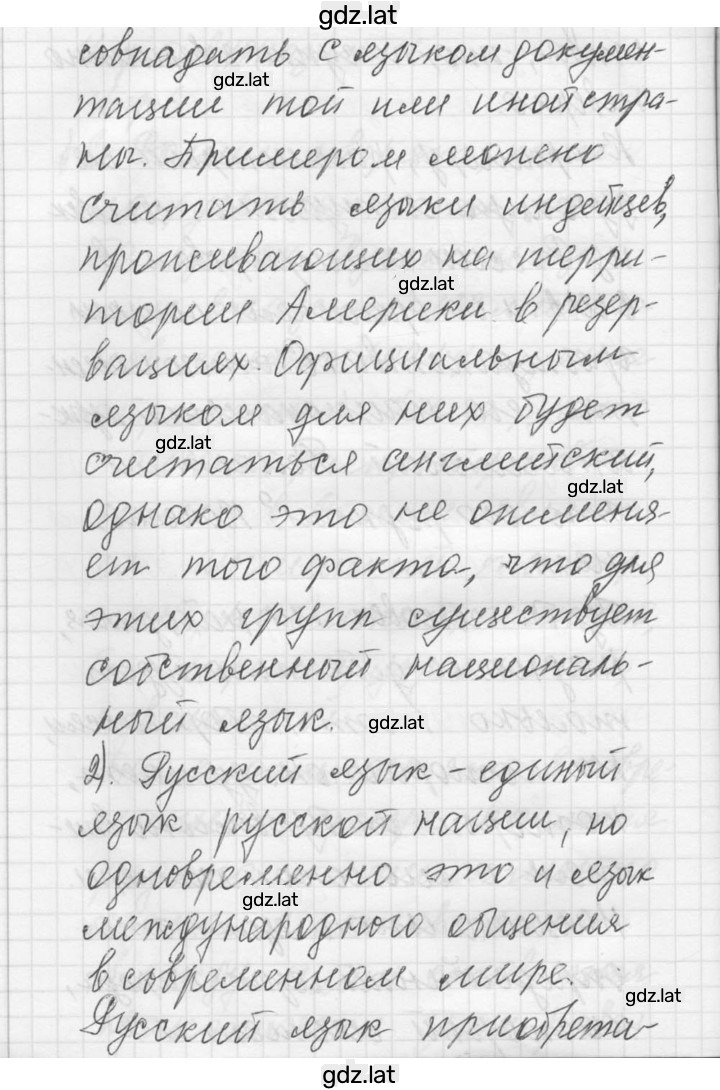 gdz.lat
совпадать с языком докумен-
gdz.lat
тации той или иной стра-
ны. Примером можно
считать языки индейцев,
проживающих на терри-
gdz.lat
тории Америки в резер-
вациях. Официальным
языком для них будет
gdz.lat
считаться английский,
gdz.lat
однако это не отменя-
ет того факта, что для
этих групп существует
собственный националь-
ный язык.
gdz.lat
2). Русский язык - единый
язык русской нации, но
одновременно это и язык
gdz.lat
международного общения
в современном мире.
gdz.lat
Русский язык приобрета-
gdz.lat